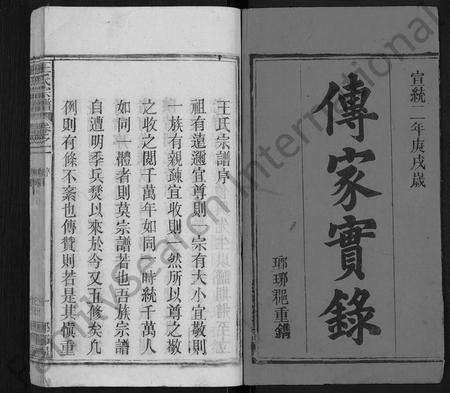 宣統二年庚戌歲
傳家實錄
瑯琊郡重鐫
王氏宗譜序
祖有遠邇宜尊則一宗有大小宜敬則
一族有親疎宜收則一然所以尊之敬
之收之閱千萬年如同一時統千萬人
如同一體者則莫宗譜若也吾族宗譜
自遭明季兵燹以來於今又五修矣凡
例則有條不紊也傳贊則若是其慎重
氏宗譜
FamilySearch International